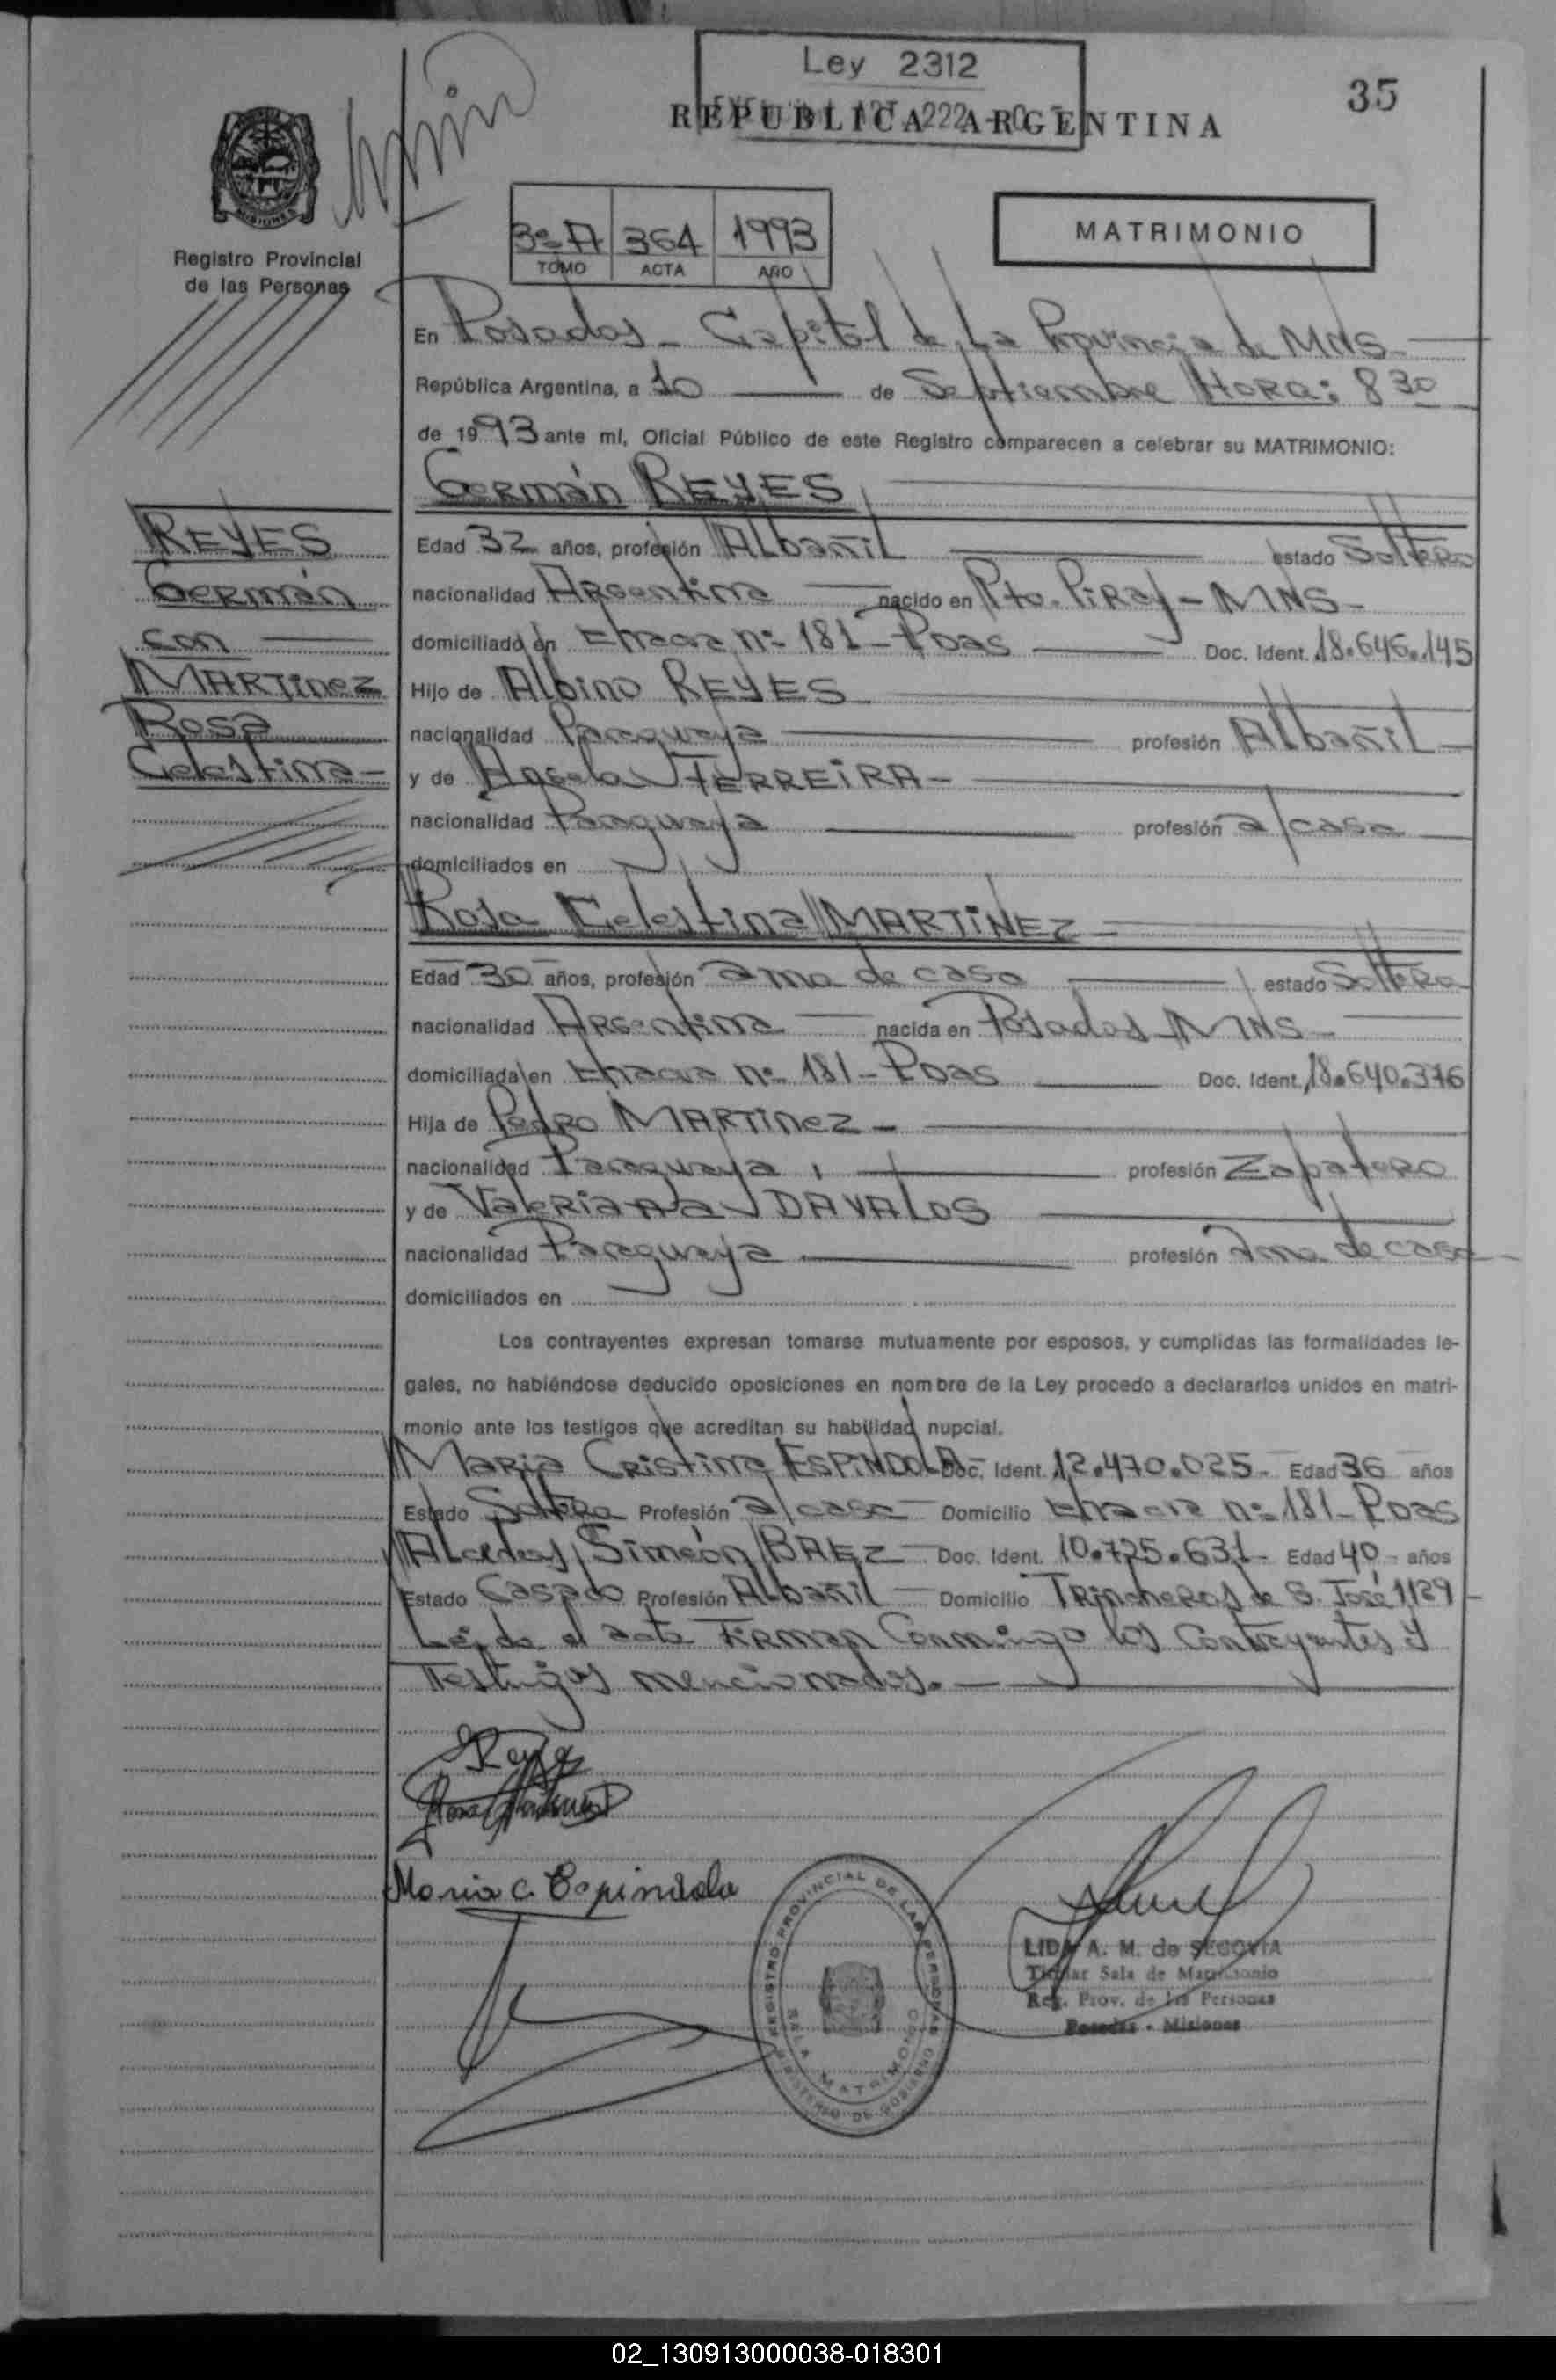 Ley 2312
35
REPUBLICA ARGENTINA
MISIONES
Registro Provincial
de las Personas
3º A 364 1993
TOMO ACTA AÑO
MATRIMONIO
En Posadas - Capital de La Provincia de MNS
República Argentina, a 10 de Septiembre HORA: 8 30
de 1993 ante mí, Oficial Público de este Registro comparecen a celebrar su MATRIMONIO:
Germán REYES
REYES
Germán
con
MARTINEZ
Rosa
Celestina
Edad 32 años, profesión Albañil estado Soltero
nacionalidad Argentina nacido en Pto. Piray - MNS -
domiciliado en Chacra nº 181 - Pdas Doc. Ident. 18.646.145
Hijo de Albino REYES
nacionalidad Paraguaya profesión Albañil
y de Angela FERREIRA -
nacionalidad Paraguaya profesión a/casa
domiciliados en
Rosa Celestina MARTINEZ
Edad 30 años, profesión ama de casa estado Soltera
nacionalidad Argentina nacida en Posadas MNS
domiciliada en Chacra nº 181 - Pdas Doc. Ident. 18.640.376
Hija de Pedro MARTINEZ -
nacionalidad Paraguaya profesión Zapatero
y de Valeriana DAVALOS
nacionalidad Paraguaya profesión Ama de casa
domiciliados en
Los contrayentes expresan tomarse mutuamente por esposos, y cumplidas las formalidades le-
gales, no habiéndose deducido oposiciones en nombre de la Ley procedo a declararlos unidos en matri-
monio ante los testigos que acreditan su habilidad nupcial.
Maria Cristina ESPINDOLA Doc. Ident. 12.470.025 - Edad 36 años
Estado Soltera Profesión a/casa Domicilio Chacra nº 181 - Pdas
Alcedes Simeón BAEZ Doc. Ident. 10.725.631 - Edad 40 años
Estado Casado Profesión Albañil Domicilio Trincheras de S. José 1129
Leída el acta Firman Conmingo los Contrayentes y
Testigos mencionados. -
Reyes
Maria C. Espindola
REGISTRO PROVINCIAL DE LAS PERSONAS
SALA MATRIMONIO
MINISTERIO DE GOBIERNO
LIDA A. M. de SEGOVIA
Titular Sala de Matrimonio
Reg. Prov. de las Personas
Posadas - Misiones
02_130913000038-018301